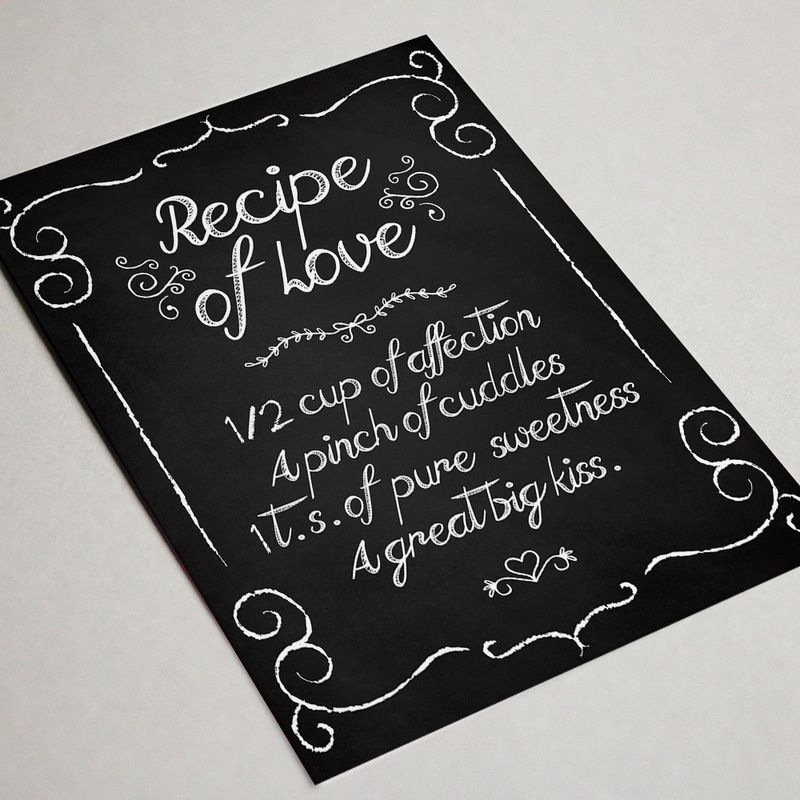 Recipe
of Love
1/2 cup of affection
A pinch of cuddles
1 T.s. of pure sweetness
A great big kiss.